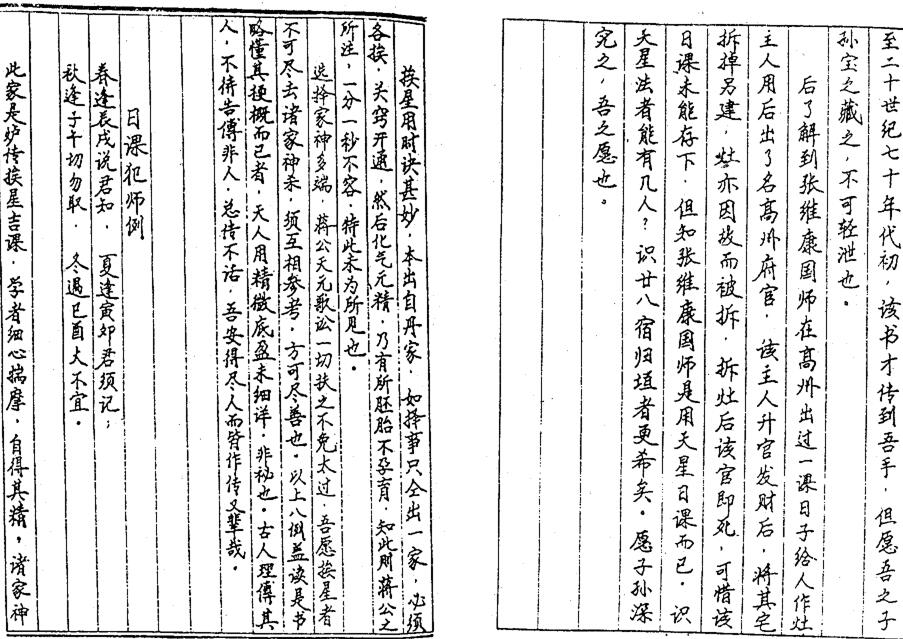 至二十世纪七十年代初，该书才传到吾手，但愿吾之子
孙宝之藏之，不可轻泄也。
后了解到张维康国师在高州出过一课日子给人作灶
主人用后出了名高州府官，该主人升官发财后，将其宅
拆掉另建，灶亦因故而被拆，拆灶后该官即死，可惜该
日课未能存下，但知张维康国师是用天星日课而已。识
天星法者能有几人？识廿八宿归垣者更希矣。愿子孙深
究之，吾之愿也。
挨星用时诀甚妙，本出自丹家，如择事只全出一家，必须
各挨，关窍开通，然后化气元精，乃有所胚胎不孕育，知此则蒋公之
所注，一分一秒不容，特此未为所见也。
选择家神多端，蒋公天元歌讼一切扶之不免太过，吾愿挨星者
不可尽去诸家神杀，须互相参考，方可尽善也。以上八例益读是书
略懂其梗概而已者，天人用精微底盈未细详，非秘也。古人理传其
人，不待告傅非人，总传不话，吾安得尽人而皆作传又辈哉。
日课犯师例
春逢辰戌说君知，夏逢寅卯君须记；
秋逢子午切勿取，冬遇巳酉大不宜。
此家是妒传挨星吉课，学者细心揣摩，自得其精，诸家神